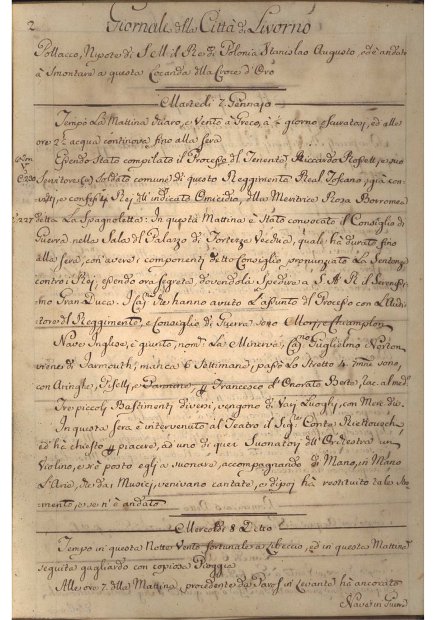 2 Giornale della Città di Livorno
Pollacco, Nipote di S. M. il Re di Polonia Stanislao Augusto, ed è andato
à smontare a questa Locanda della Croce d'Oro
Martedi 7 Gennajo
Tempo La Mattina chiaro, e Vento à Greco, à ½ giorno e, ed alle
ore 2½ acqua continova fino alla sera
Essendo stato compilato il Processo del Tenente Riccardo Rossett, e suo
Servitore, Soldato comune di questo Reggimento Real Toscano, già con
e Rej dell'indicato Omicidio, della Meretrice Rosa Borromea
detta La Spagnoletta: In questa Mattina è stato convocato il Consiglio di
Guerra nella Sala del Palazzo di Fortezza Vecchia, quale hà durato fino
alla sera, con avere i componenti detto Consiglio pronunziato La Sentenza
contro i Rej, essendo ora segreta, dovendola spedire a S. A. R. il Serenissimo
Gran Duca. I che hanno avuto L'assunto del Processo con L'Auditore
del Reggimento, e Consiglio di Guerra sono
Nave Inglese, è giunta, nom. La Minerva, Cap.no Guglielmo Norton
viene di Jarmouth, manca 6 Settimane, passò Lo Stretto 4. sono,
con Aringhe, Piselli, e, Francesco d'Onorato Berte, rac. al med.
Tre piccoli Bastimenti diversi, vengono di Varj Luoghi, con Merc. div.
In questa sera è intervenuto al Teatro il Sig.re Conte
ed hà chiesto piacere, ad uno di quei Suonatori dell'Orchestra un
Violino, e s'è posto egli a suonare, accompagnando di Mano, in Mano
L'Arie, che dai Musici, venivano cantate, e dipoi hà restituito tale Stromento,
e se n'è andato
Mercoldi 8 Detto
Tempo in questa Notte Vento fortunale a Libeccio, ed in questa Mattina
seguita gagliardo con copiosa Pioggia
Alle ore 7. della Mattina, procedente da Paros in Levante hà ancorato